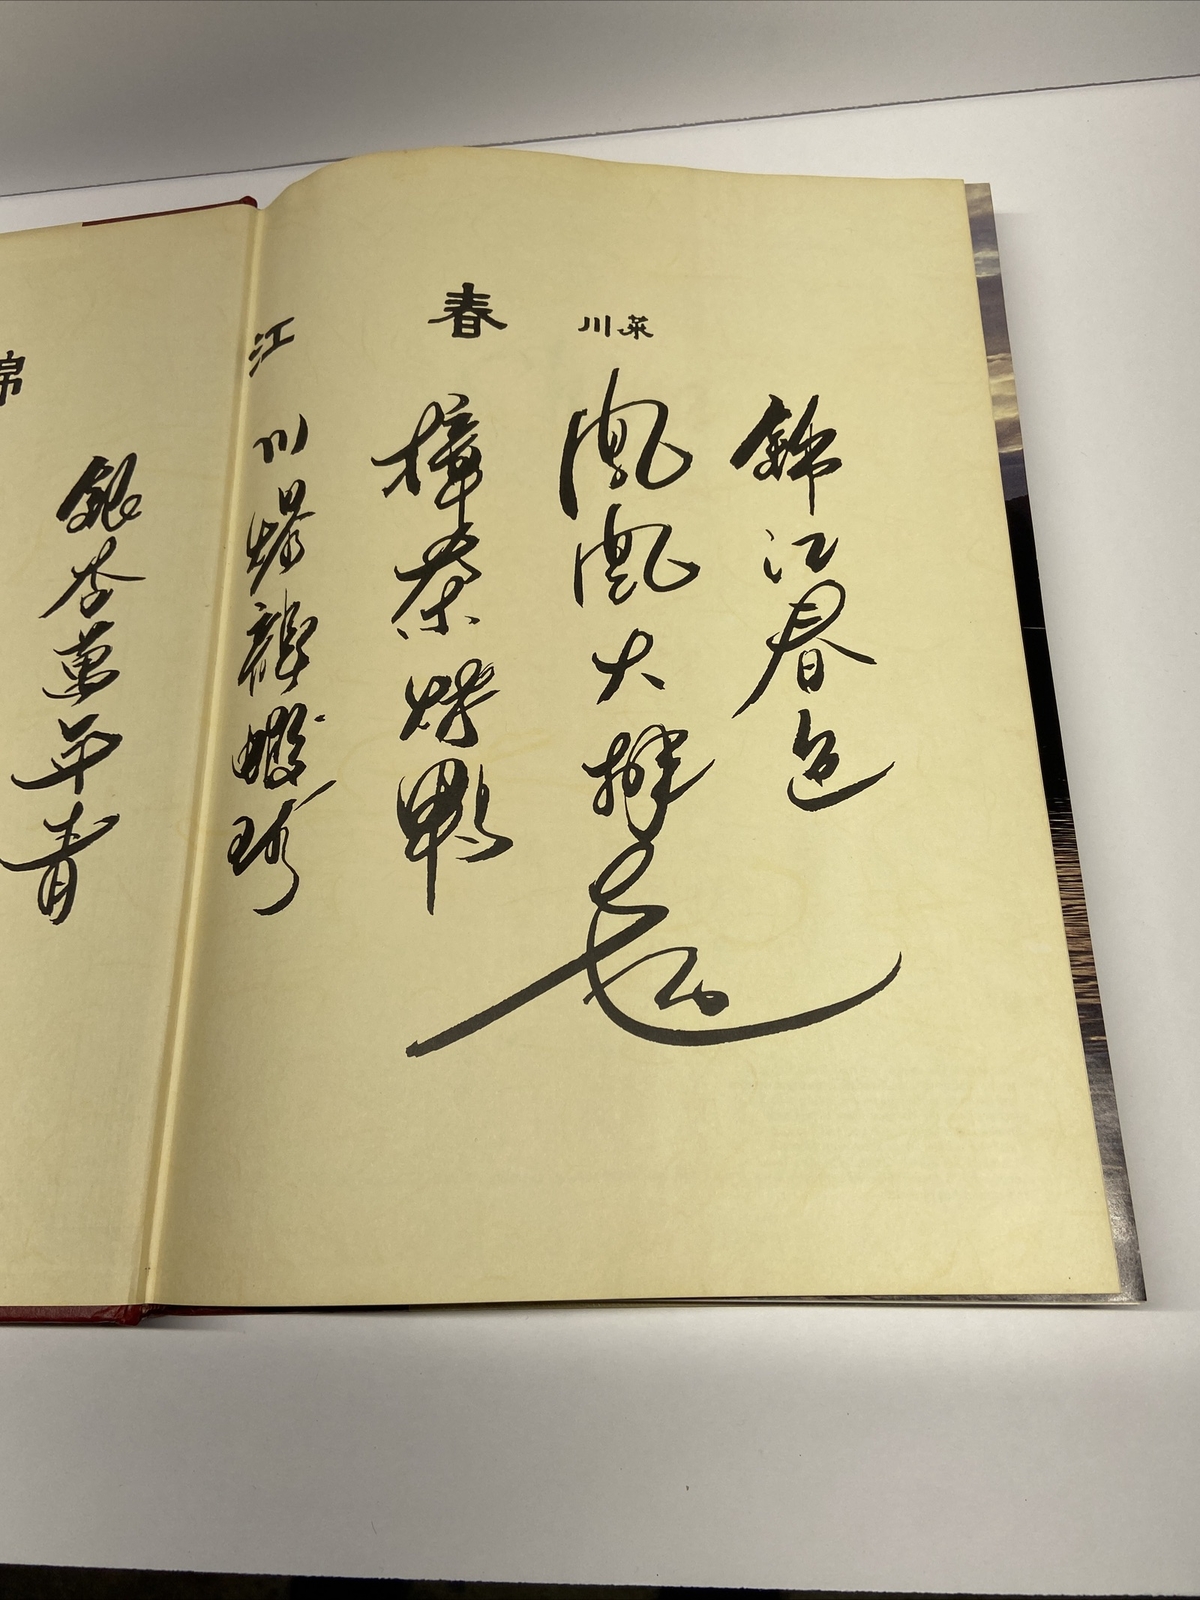 錦江春 川菜
錦江春色
鳳凰大拼盤
樟茶烤鴨
川爆龍蝦球
銀杏萬年青